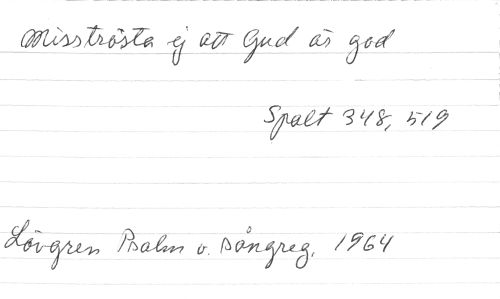 Misströsta ej att Gud är god
Spalt 348, 519
Lövgren Psalm o. sångreg. 1964